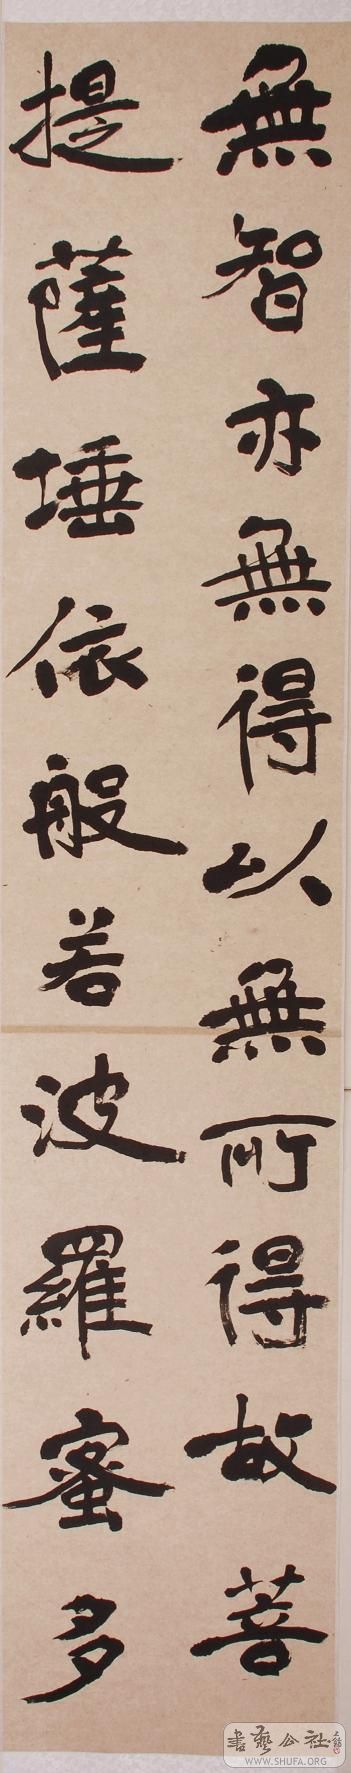 無智亦無得以無所得故菩
提薩埵依般若波羅蜜多
書藝公社
WWW.SHUFA.ORG